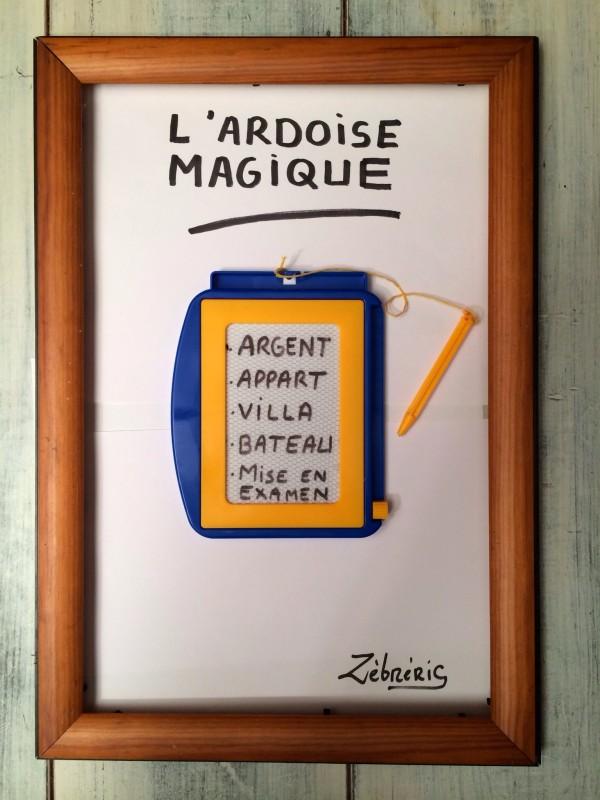 L'ARDOISE
MAGIQUE
· ARGENT
· APPART
· VILLA
· BATEAU
· MISE EN
EXAMEN
Zèbréric